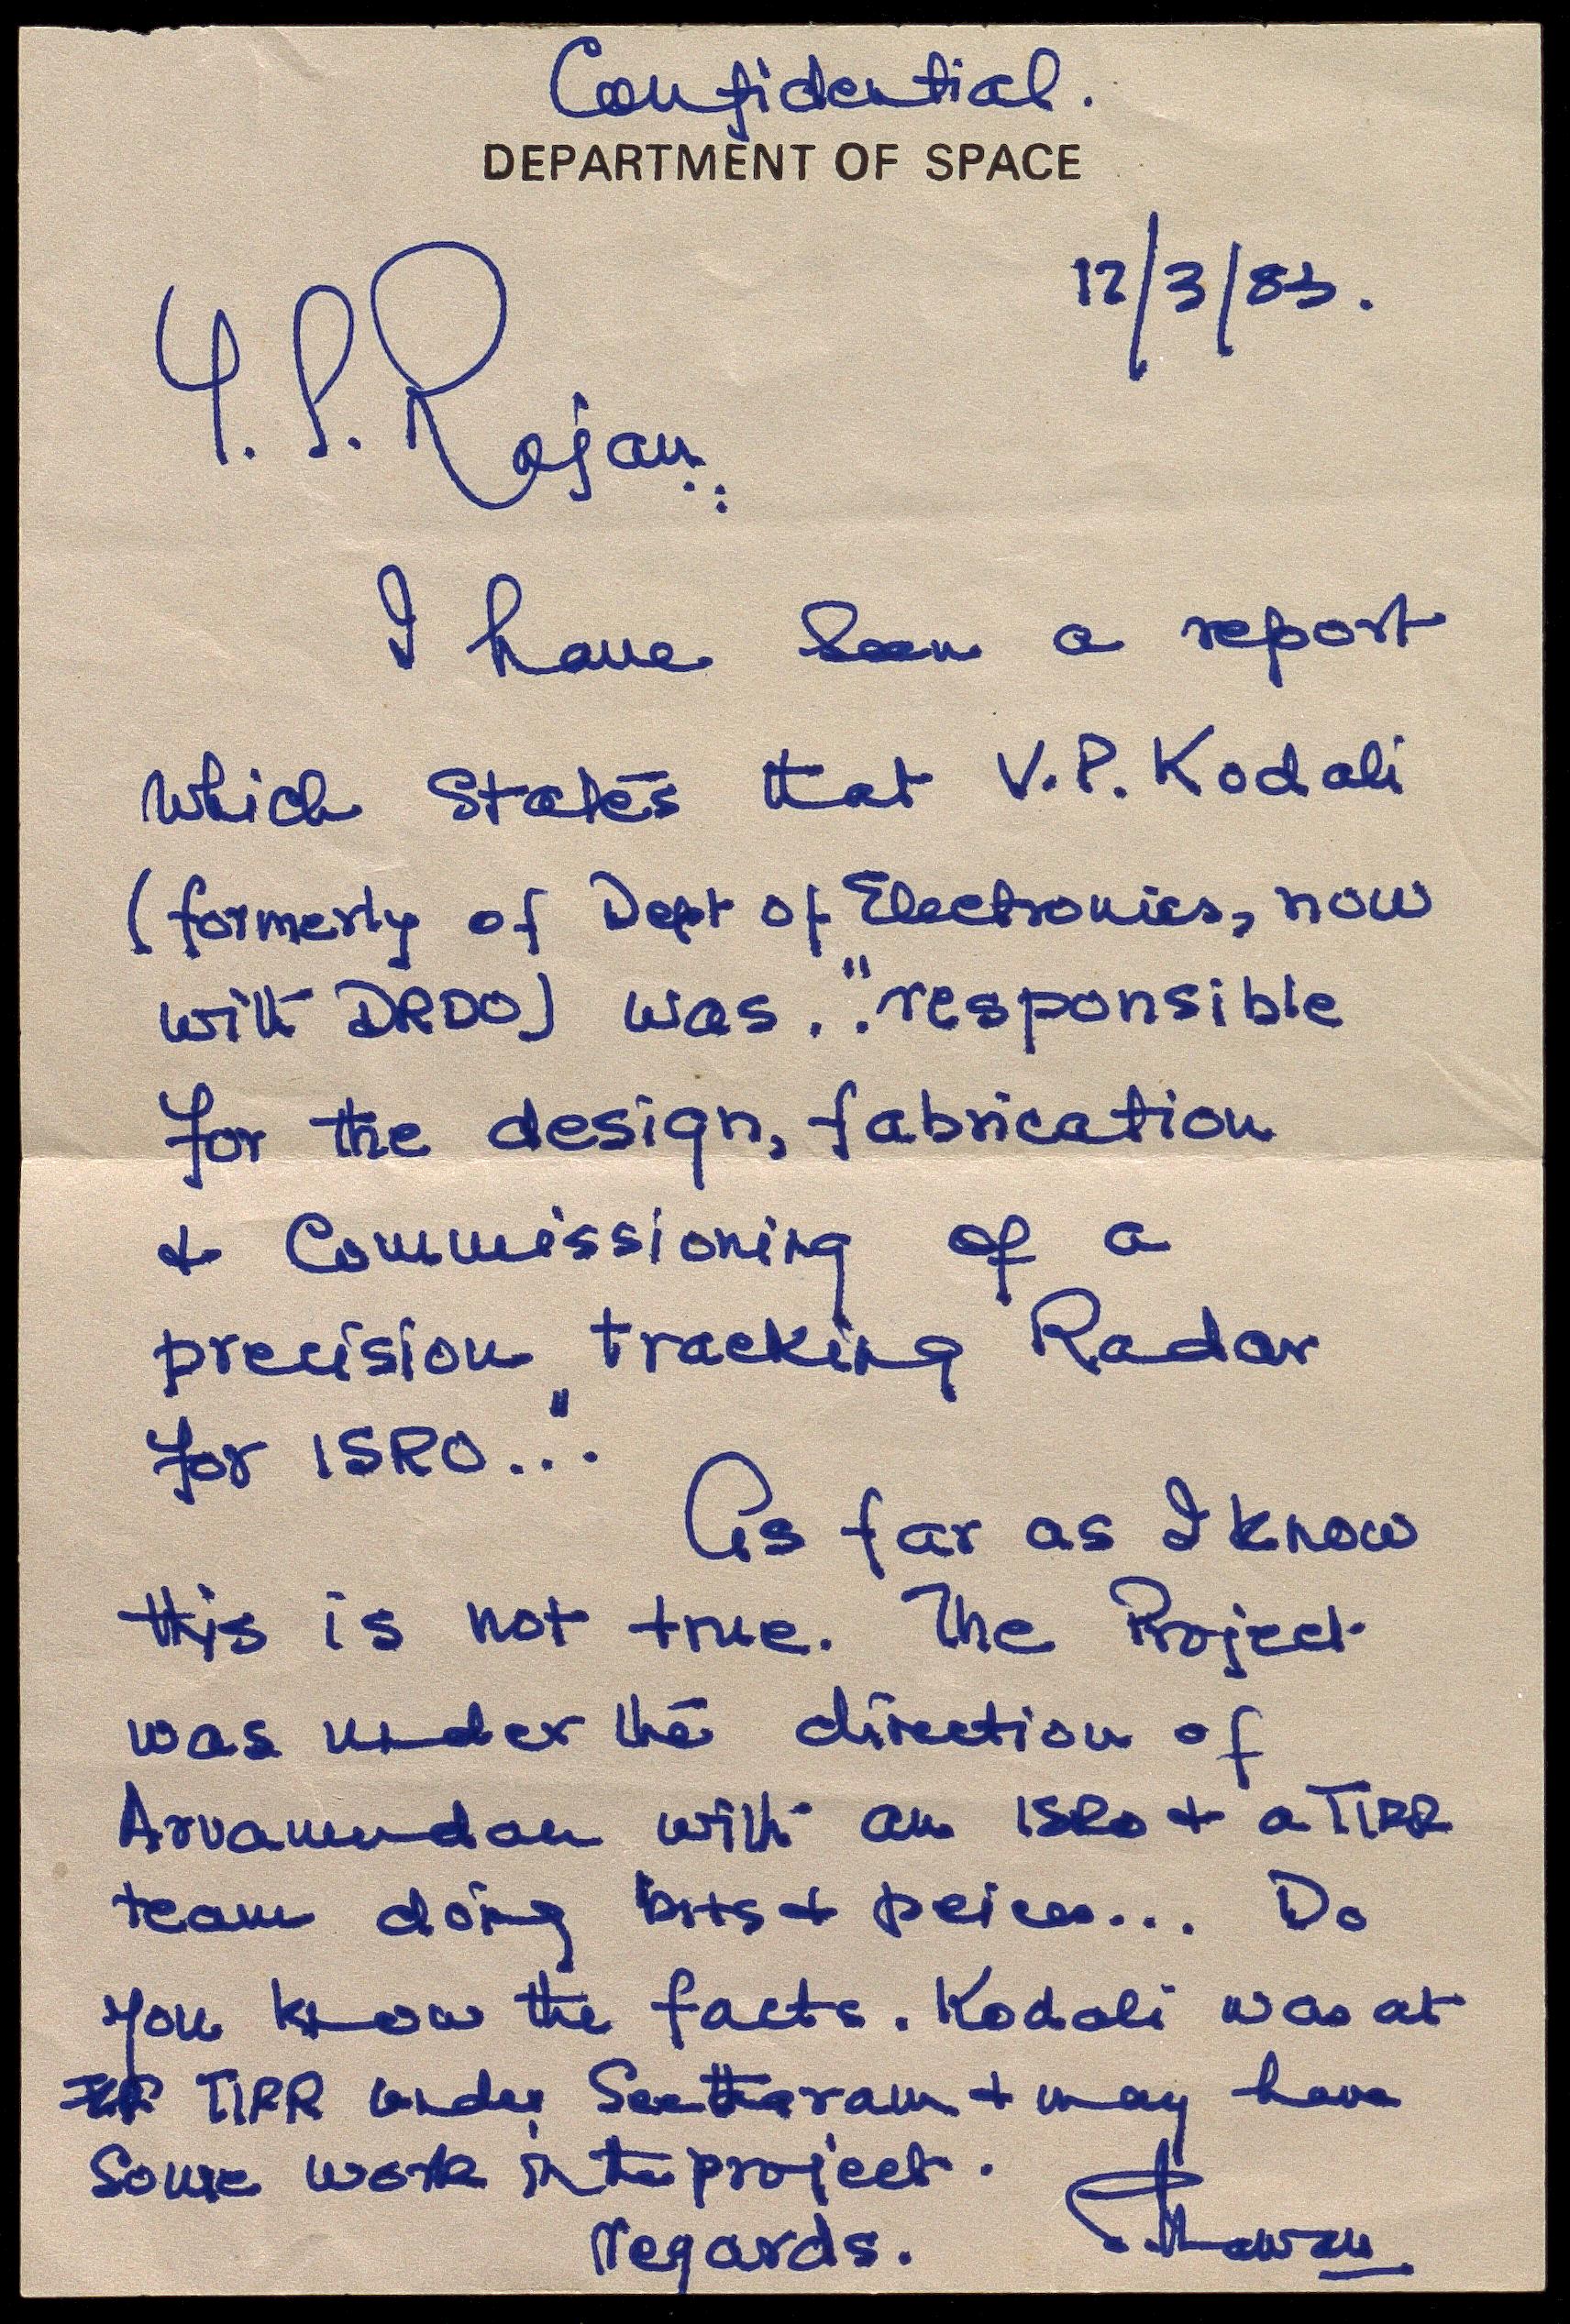 Confidential.
DEPARTMENT OF SPACE
12/3/83.
Y. S. Rajan:
I have seen a report
which states that V.P. Kodali
(formerly of Dept of Electronics, now
with DRDO) was .. "responsible
for the design, fabrication
& Commissioning of a
precision tracking Radar
for ISRO..."
As far as I know
this is not true. The Project
was under the direction of
Arvamudan with an ISRO & a TIFR
team doing bits & peices... Do
you know the facts. Kodali was at
TIFR under Seetharam & may have
some work in the project.
regards. Dhawan